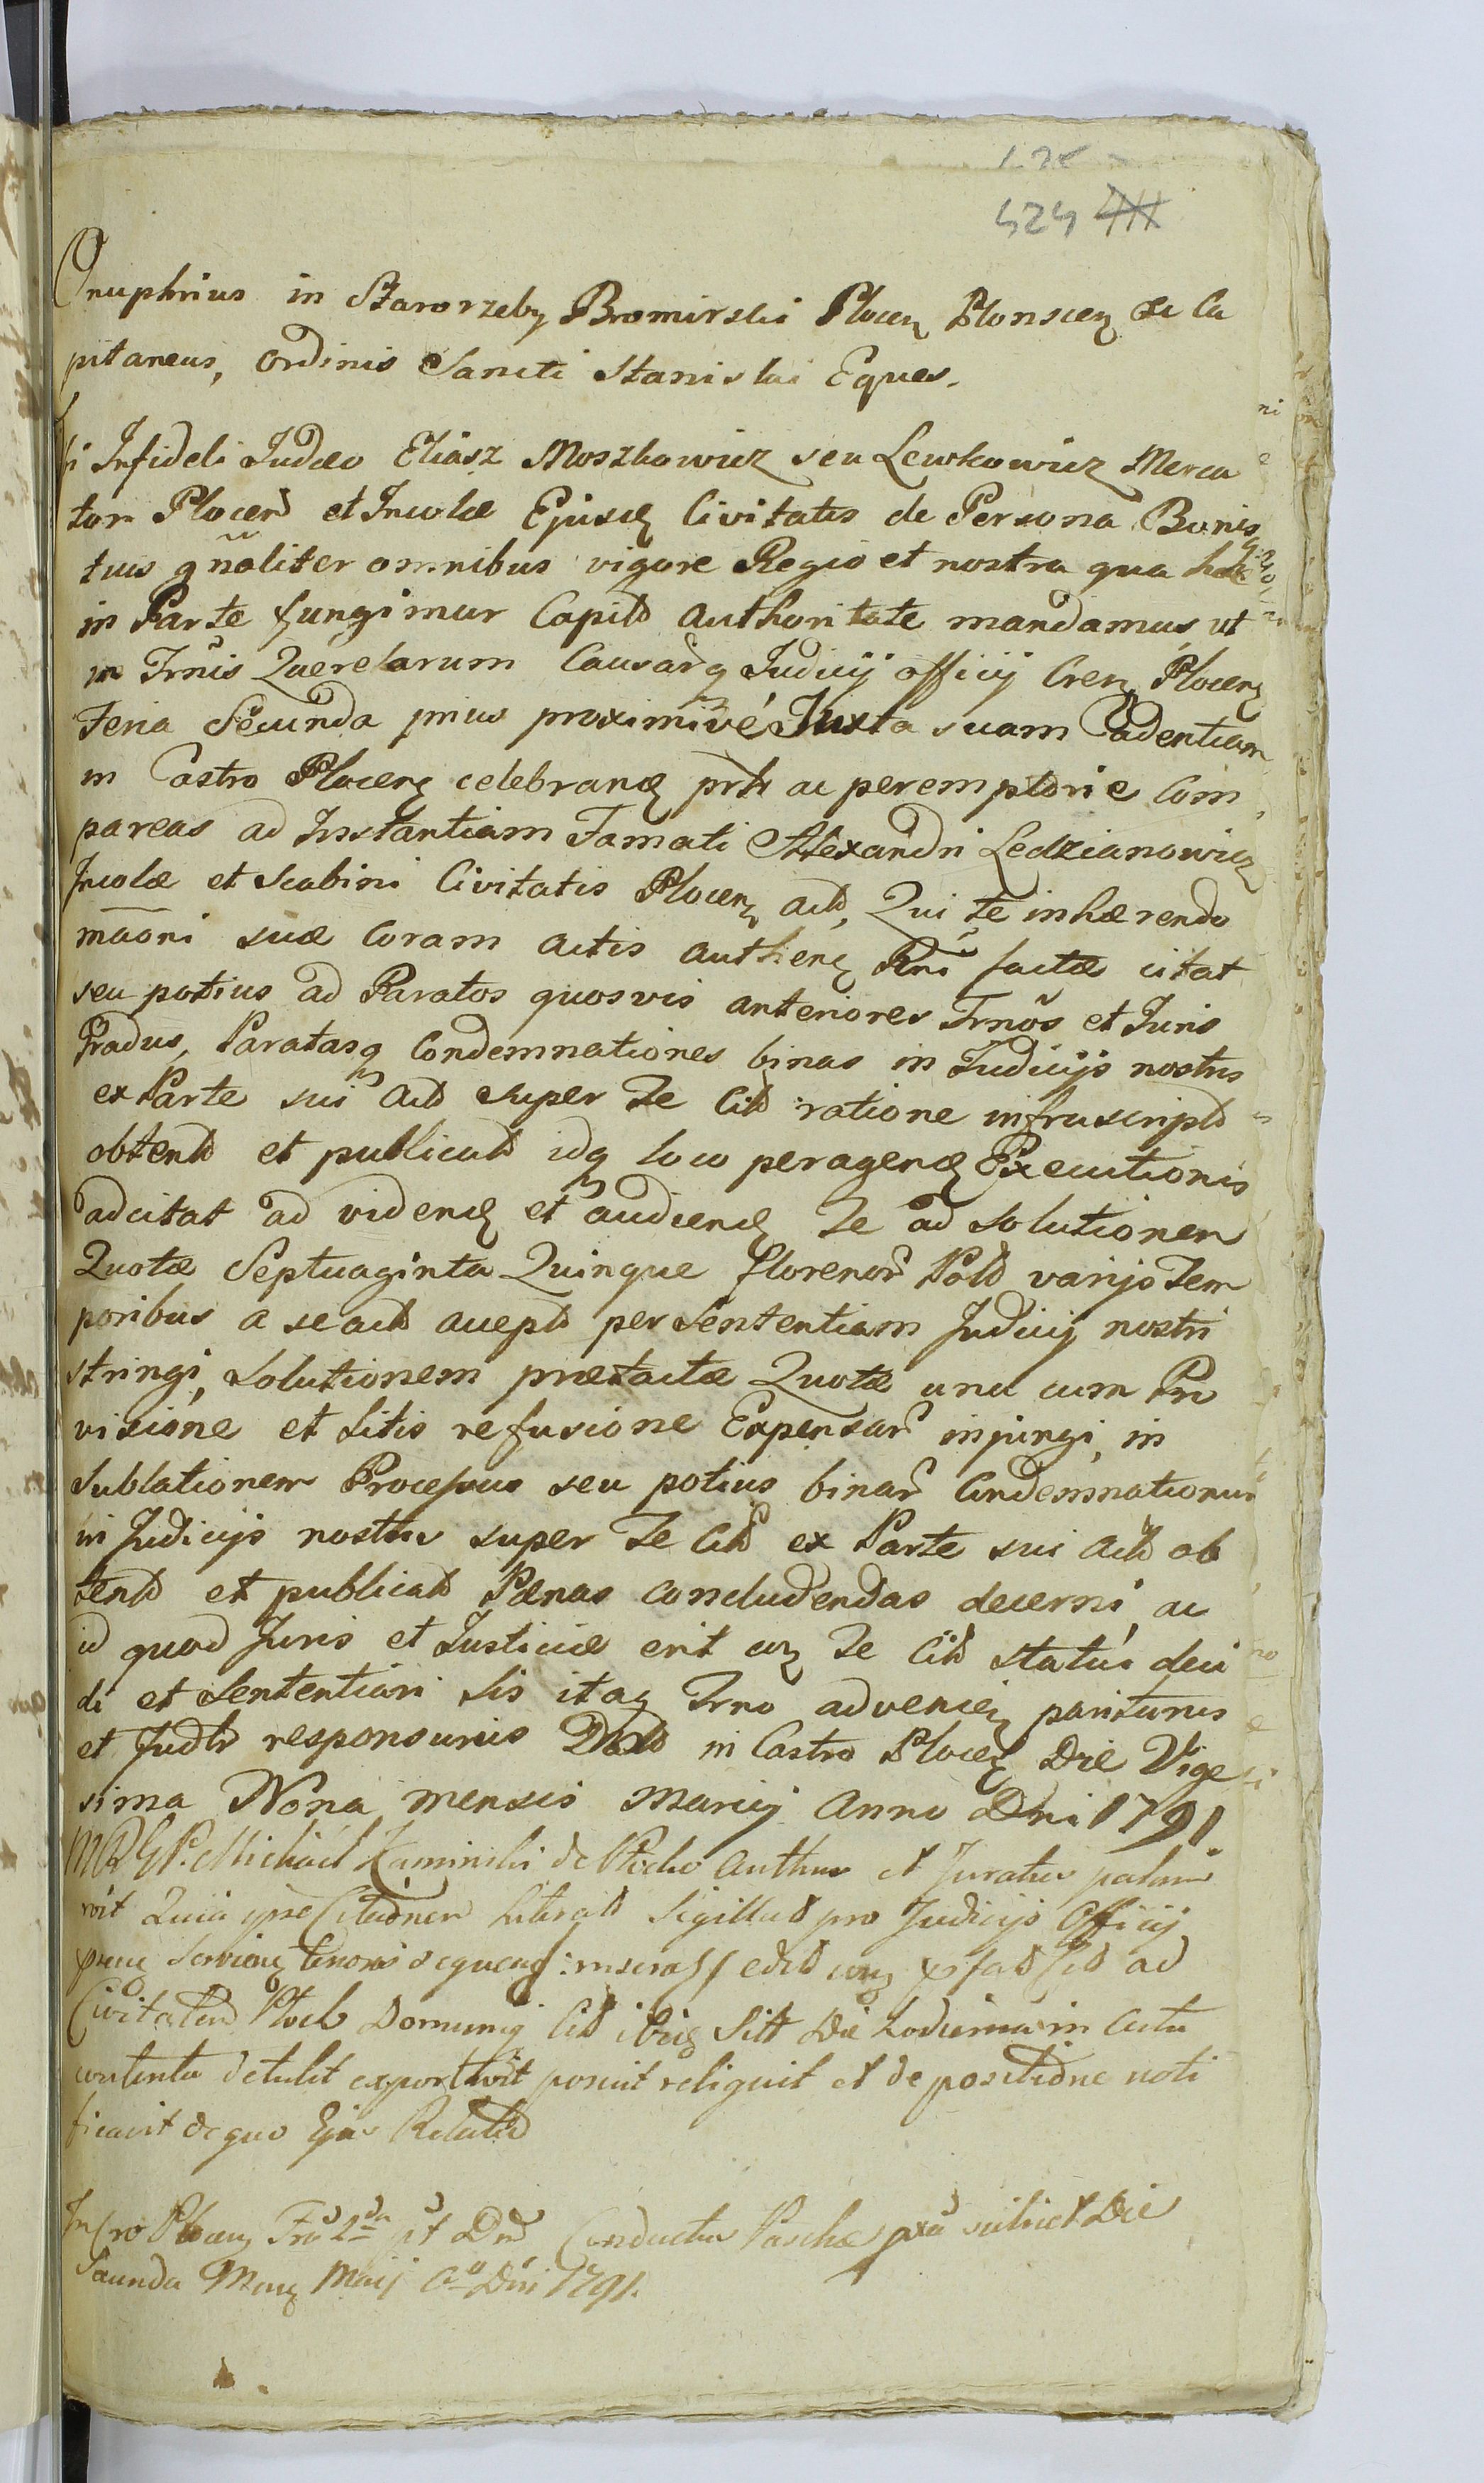 424
Onuphrius in Starorzeby Bromirski Plocen Plonscen &c Ca
pitaneus, Ordinis Sancti Stanislai Eques.
Tibi Infideli Judæo Eliasz Moszkowicz seu Lewkowicz Merca
tori Plocen et Incolæ Ejusd Civitatis de Persona Bonisq
tuis gñaliter omnibus vigore Regio et nostra qua hac
in Parte fungimur Capit Authoritate mandamus ut
in Trñis Querelarum Causarq Judicij officij Cren Plocen
Feria Secunda prius proximive Juxta suam Cadentiam
in Castro Plocen celebrand prtr ac peremptorie Com
pareas ad Instantiam Famati Alexandri Ledzianowicz
Incolæ et Scabini Civitatis Plocen act, Qui te inhærendo
māoni suæ Coram actis authen factæ citat
seu potius ad Paratos quosvis anteriores Trños et Juris
Gradus, Paratasq Condemnationes binas in Judicijs nostris
ex Parte sui Act super Te Cit ratione infrascript
obtent et publicat idq loco peragend Executionis
adcitat ad vidend et audiend Te ad Solutionem
Quotæ Septuaginta Quinque florenor Pol varijs Tem
poribus a se act accept per Sententiam Judicij nostri
stringi, Solutionem prætactæ Quotæ una cum Pro
visione et Litis refusione Expensar injungi, in
Sublationem Processus seu potius binar Condemnationum
in Judicijs nostris super Te Cit ex Parte sui Act ob
tent et publicat Pænas concludendas decerni, ac
id quod Juris et Justiciæ erit cum Te Cit statui deci
di et Sententiari Sis itaq Trno advenien pariturus
et Judtr responsurus Dat in Castro Plocen Die Vige
sima Nona mensis Marcij Anno Dni 1791
Michael Kaminski de Plocko Authus et Juratus palam
vit Quia ipse Citaõnem Literat Sigillat pro Judicijs Officij
servien tenoris sequen: ad
Civitatem Plock Domumq Cit ibid Sitt Die hodierna in Actu
contenta detulit exportavit posuit reliquit et de positione noti
ficavit de quo Ejus Relatio
In Cro Plocen Fria 2da pt Dnm Conductus Paschæ pxa scilicet Die
Secunda Mens Maij Ao Dni 1791.